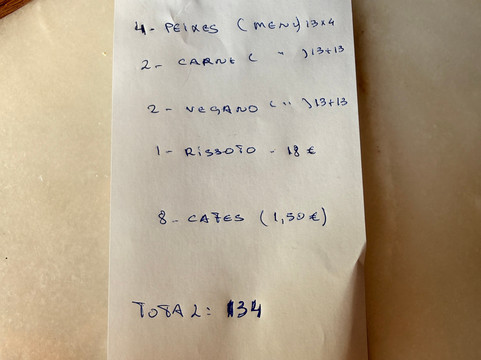 4- PEIXES (MENU) 13x4
2- CARNE ( " ) 13+13
2- VEGANO ( " ) 13+13
1- RISSOTO - 18 €
8- CAFES (1,50€)
TOTAL: 134